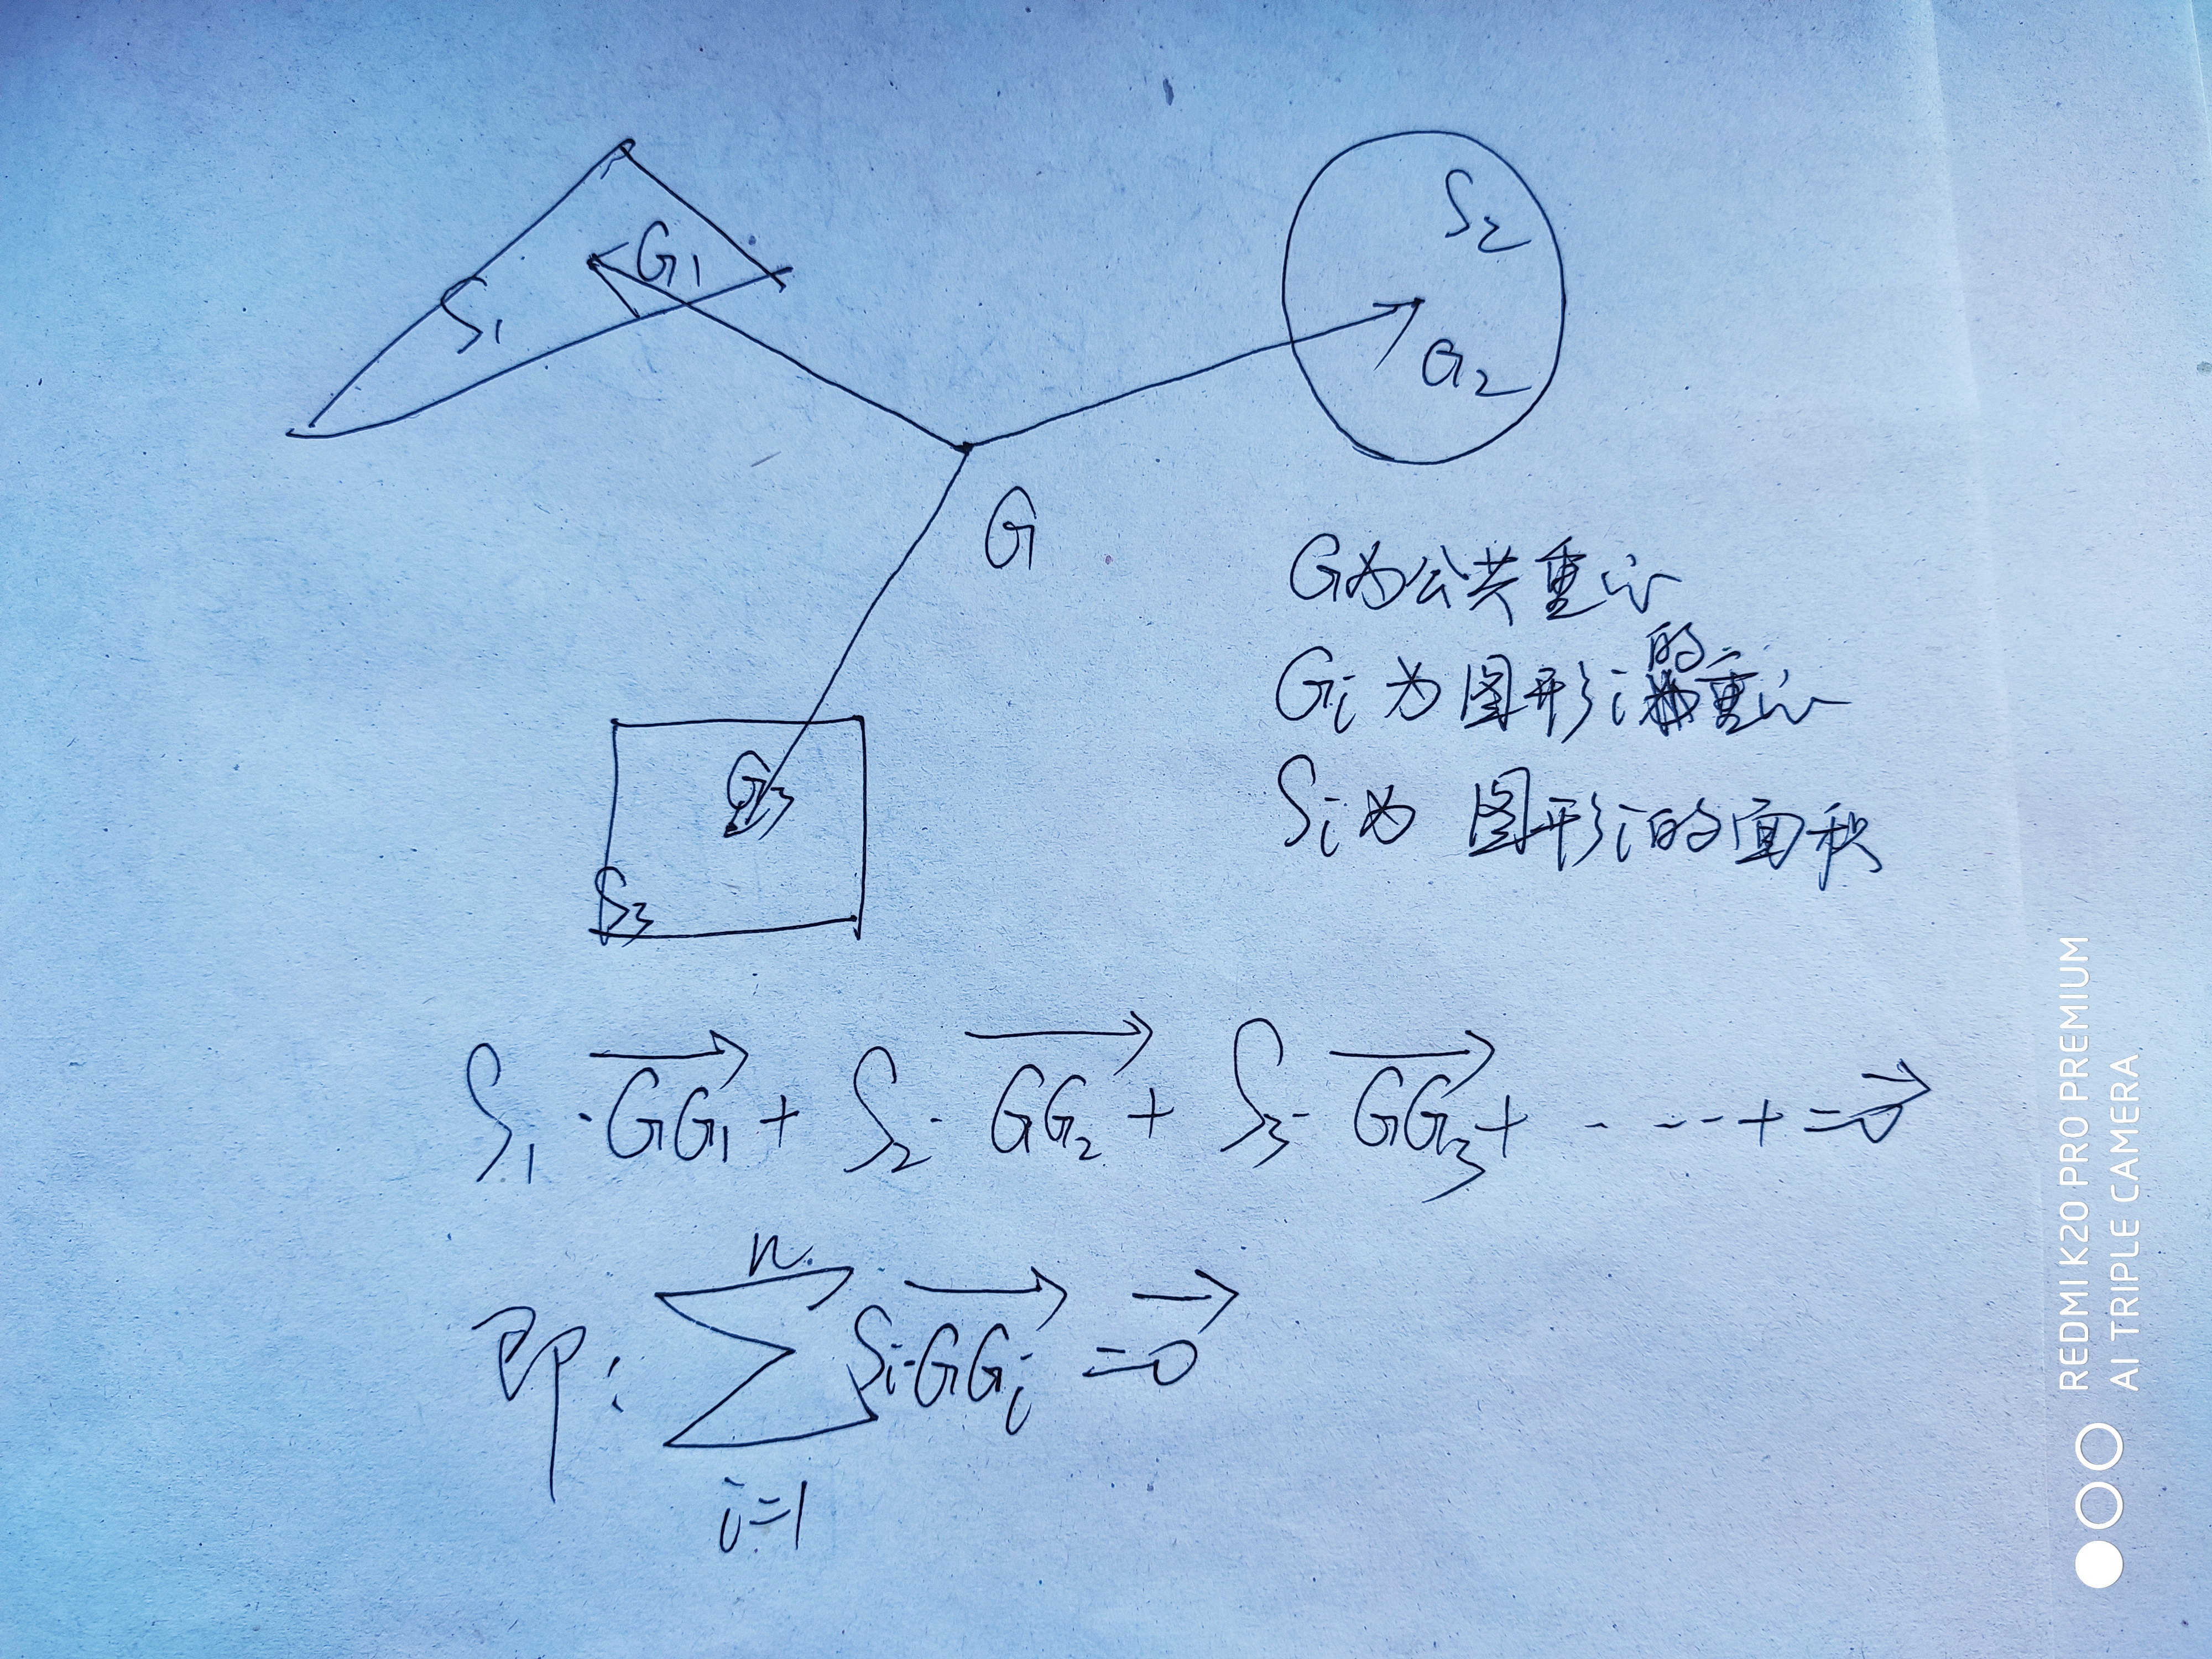 S₁
G₁
S₂
G₂
G
G₃
S₃
G为公共重心
Gᵢ为图形i的重心
Sᵢ为图形i的面积
S₁·GG₁+S₂·GG₂+S₃·GG₃+……+=0
n
即：∑Sᵢ·GGᵢ=0
i=1
REDMI K20 PRO PREMIUM
AI TRIPLE CAMERA